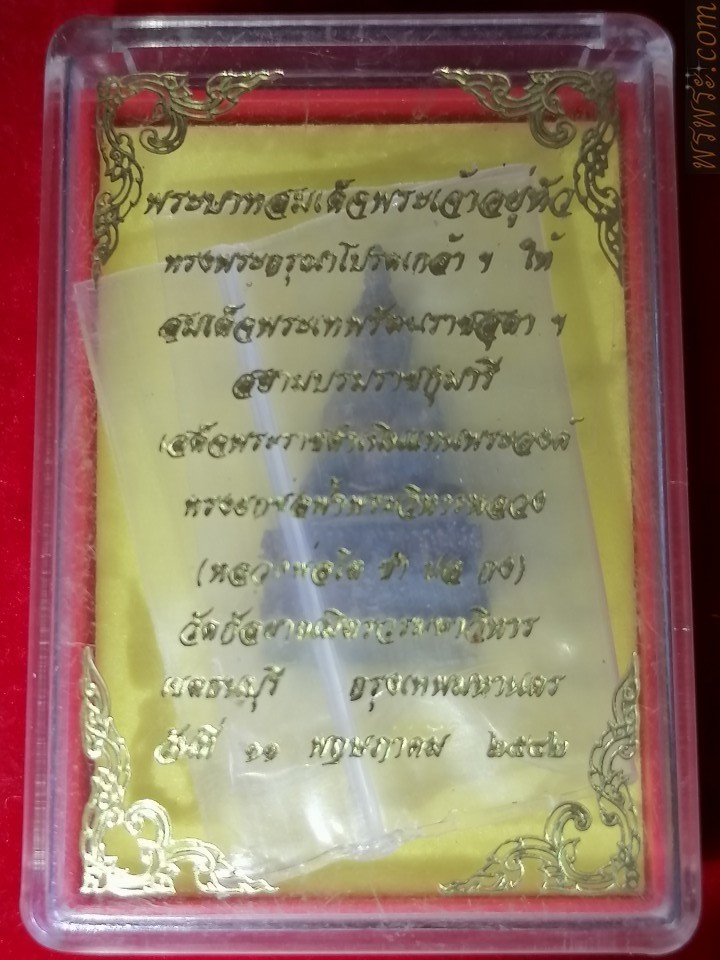 พรพระ.com
พระบาทสมเด็จพระเจ้าอยู่หัว
ทรงพระกรุณาโปรดเกล้า ฯ ให้
สมเด็จพระเทพรัตนราชสุดา ฯ
สยามบรมราชกุมารี
เสด็จพระราชดำเนินแทนพระองค์
ทรงยกช่อฟ้าพระวิหารหลวง
(หลวงพ่อโต ซำ ปอ กง)
วัดกัลยาณมิตรวรมหาวิหาร
เขตธนบุรี กรุงเทพมหานคร
วันที่ ๑๑ พฤษภาคม ๒๕๔๒